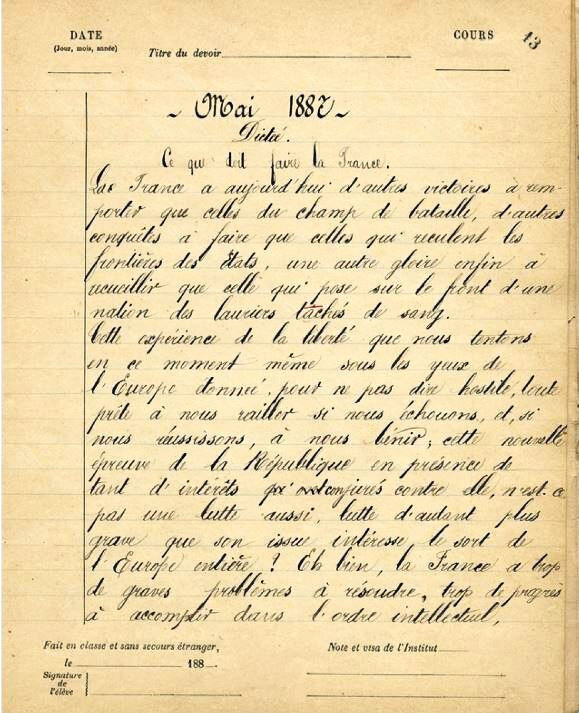 DATE
(Jour, mois, année)
Titre du devoir
COURS
13
~ Mai 1887 ~
Dictée.
Ce que doit faire la France.
La France a aujourd'hui d'autres victoires à rem-
porter que celles du champ de bataille, d'autres
conquêtes à faire que celles qui reculent les
frontières des États, une autre gloire enfin à
recueillir que celle qui pose sur le front d'une
nation des lauriers tachés de sang.
Cette expérience de la liberté que nous tentons
en ce moment même sous les yeux de
l'Europe étonneé, pour ne pas dire hostile, toute
prête à nous railler si nous échouons, et, si
nous réussissons, à nous bénir ; cette nouvelle
épreuve de la République en présence de
tant d'intérêts conjurés contre elle, n'est-ce
pas une lutte aussi, lutte d'autant plus
grave que son issue intéresse le sort de
l'Europe entière ? Eh bien, la France a trop
de graves problèmes à résoudre, trop de progrès
à accomplir dans l'ordre intellectuel,
Fait en classe et sans secours étranger,
le 188
Note et visa de l'Institut
Signature
de
l'élève